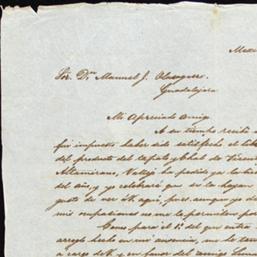 Mexi
Sor. Dn. Manuel J. Olasagarre.
Guadalajara
Mi Apreciado Amigo
A su tiempo recibí
fui impuesto haber sido satisfecho el
del producto del Tapalo y Chal de
Altamirano, Vallejo ha pedido ya
del año, y yo celebraré que se la hayan
gusto de ver Vd. aqui, pues aunque yo
mis ocupaciones no me la permiten
Como para el 1º del que entra
arreglo hecho en mi ausencia, me lo
a cargo de V. y en favor del amigo